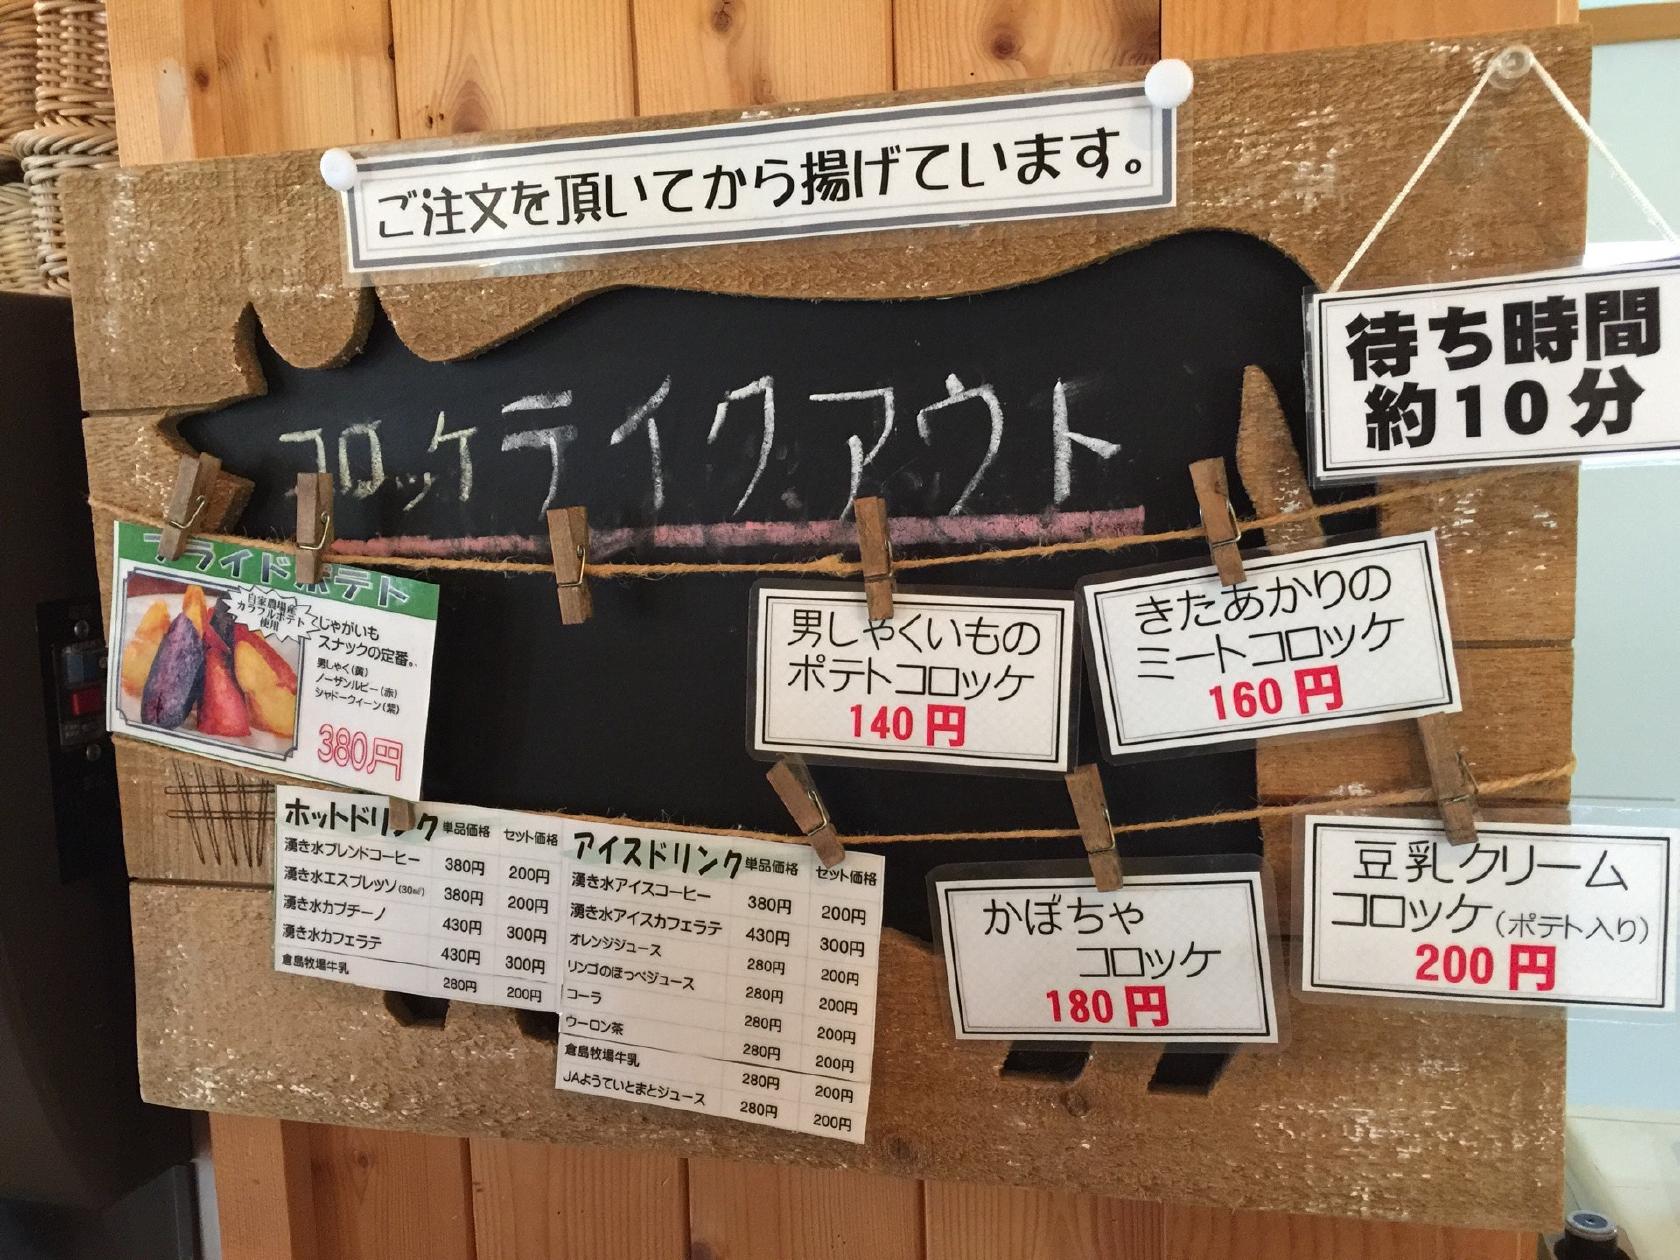 ご注文を頂いてから揚げています。
待ち時間
約10分
コロッケテイクアウト
フライドポテト
自家農場産
カラフルポテト
使用
じゃがいも
スナックの定番。
男しゃく(黄)
ノーザンルビー(赤)
シャドークィーン(紫)
380円
男しゃくいもの
ポテトコロッケ
140円
きたあかりの
ミートコロッケ
160円
ホットドリンク 単品価格 セット価格
湧き水ブレンドコーヒー 380円 200円
湧き水エスプレッソ(30㎖) 380円 200円
湧き水カプチーノ 430円 300円
湧き水カフェラテ 430円 300円
倉島牧場牛乳 280円 200円
アイスドリンク 単品価格 セット価格
湧き水アイスコーヒー 380円 200円
湧き水アイスカフェラテ 430円 300円
オレンジジュース 280円 200円
リンゴのほっぺジュース 280円 200円
コーラ 280円 200円
ウーロン茶 280円 200円
倉島牧場牛乳 280円 200円
JAようていとまとジュース 280円 200円
かぼちゃ
コロッケ
180円
豆乳クリーム
コロッケ(ポテト入り)
200円